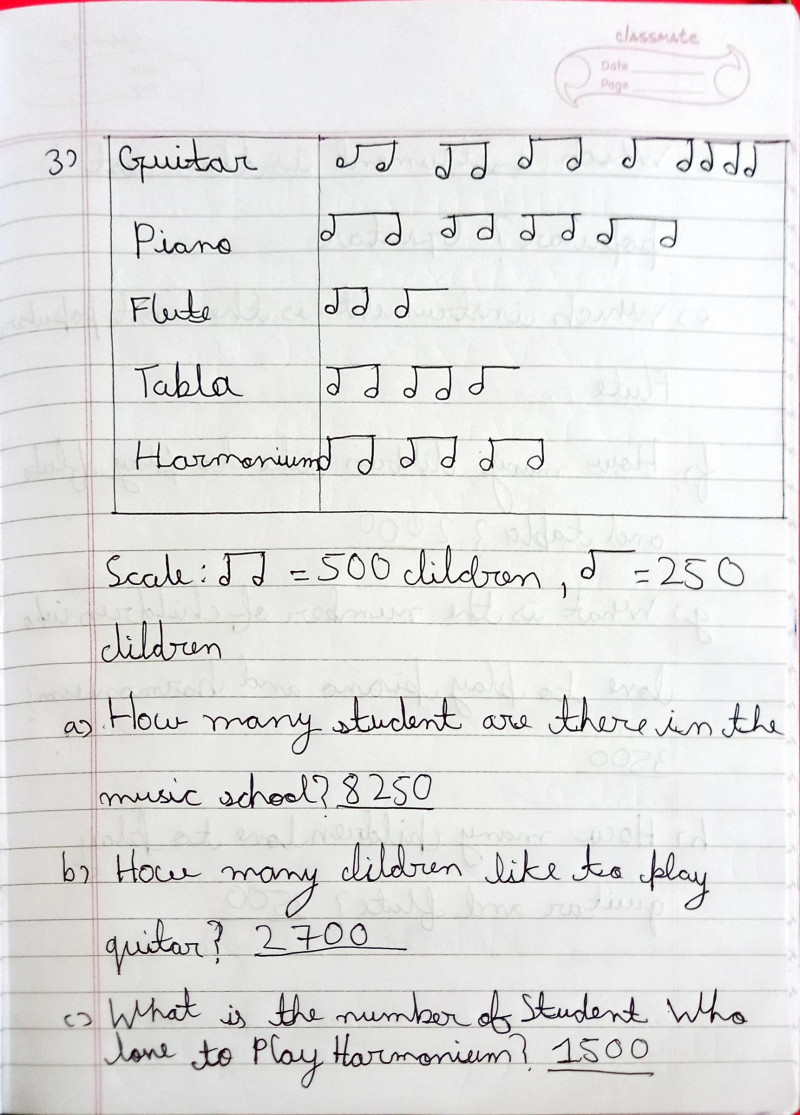 classmate
Date
Page
3) Guitar
Piano
Flute
Tabla
Harmonium
Scale: = 500 dildren, = 250
dildren
a) How many student are there in the
music school? 8250
b) How many dildren like to play
guitar? 2700
c) What is the number of Student Who
lone to Play Harmonium? 1500